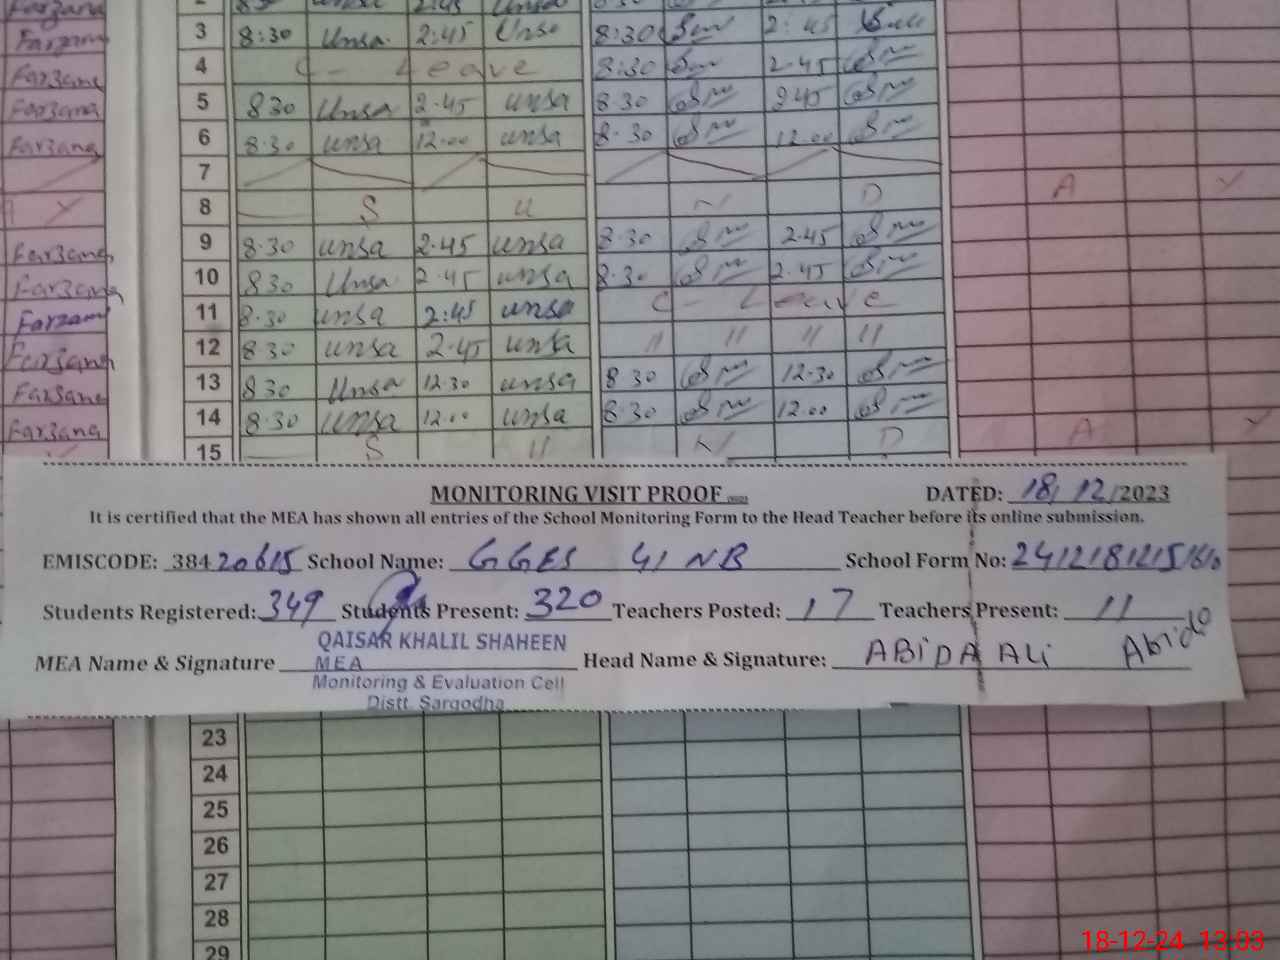 3 8:30 Unsa 2:45 Unsa 8:30 2:45
Farzana 4 C- Leave 8:30 2.45
Farzana 5 8 30 Unsa 2.45 unsa 8.30 2 45
Farzana 6 8.30 unsa 12.00 unsa 8.30 12.00
7
8 S U N D A Y
Farzana 9 8.30 unsa 2.45 unsa 8.30 2.45
Farzana 10 8 30 Unsa 2.45 unsa 8.30 2.45
Farzana 11 8.30 unsa 2:45 unsa C- Leave
Farzana 12 8.30 unsa 2.45 unsa 11 11 11 11
Farzana 13 8 30 Unsa 12.30 unsa 8 30 12.30
Farzana 14 8.30 unsa 12.00 unsa 8.30 12.00
15 S U N D A Y
MONITORING VISIT PROOF DATED: 18/12/2023
It is certified that the MEA has shown all entries of the School Monitoring Form to the Head Teacher before its online submission.
EMISCODE: 38420615 School Name: GGES 41 NB School Form No:
Students Registered: 349 Students Present: 320 Teachers Posted: 17 Teachers Present: 11
QAISAR KHALIL SHAHEEN
MEA Name & Signature MEA Head Name & Signature: ABiDA ALi Abida
Monitoring & Evaluation Cell
Distt. Sargodha
23
24
25
26
27
28
29
18-12-24 13:03